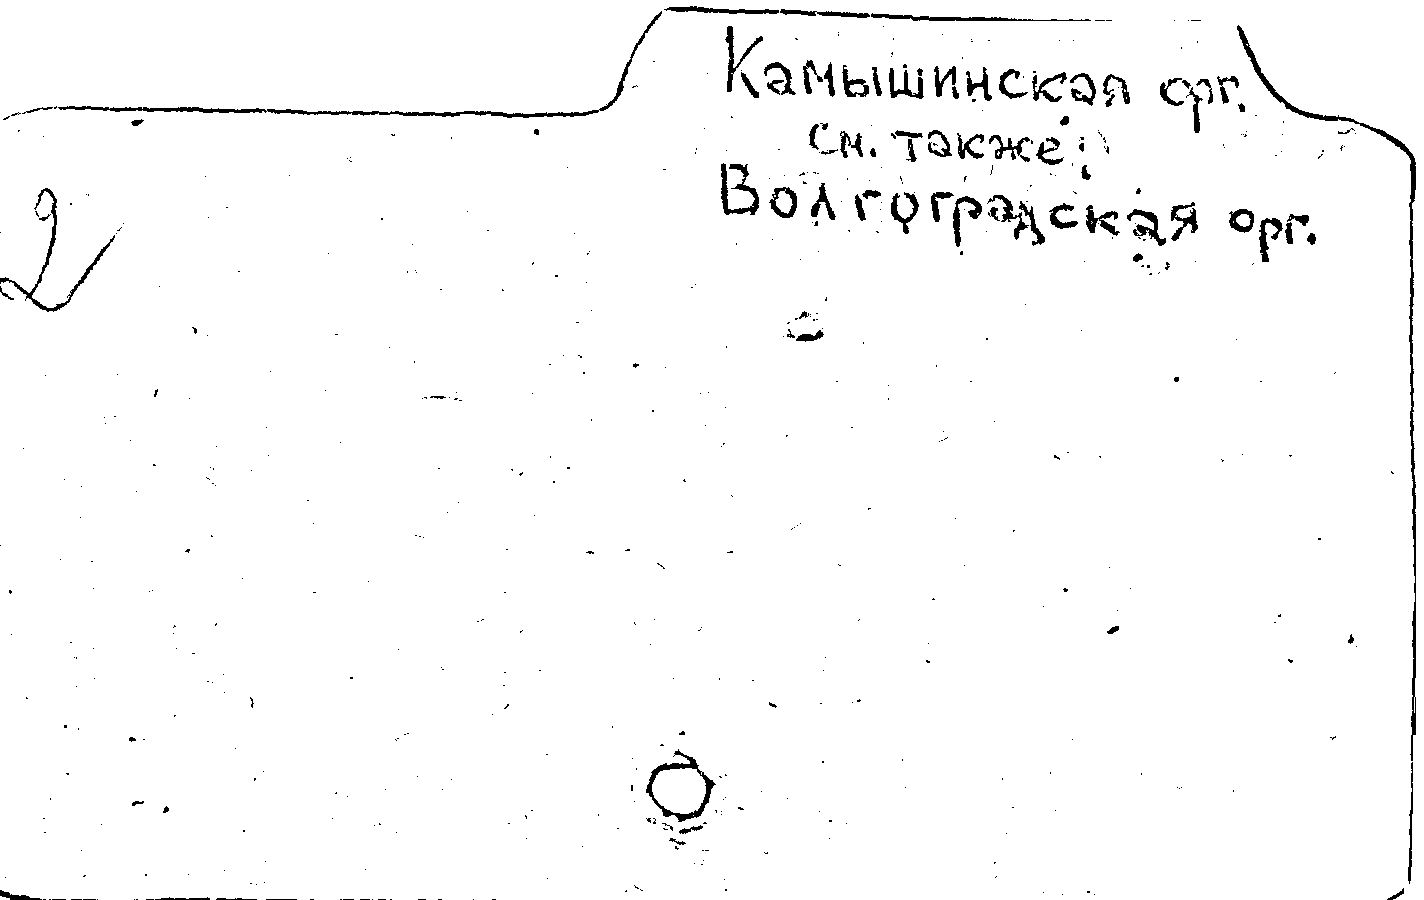 Камышинская орг.
см. также:
Волгоградская орг.